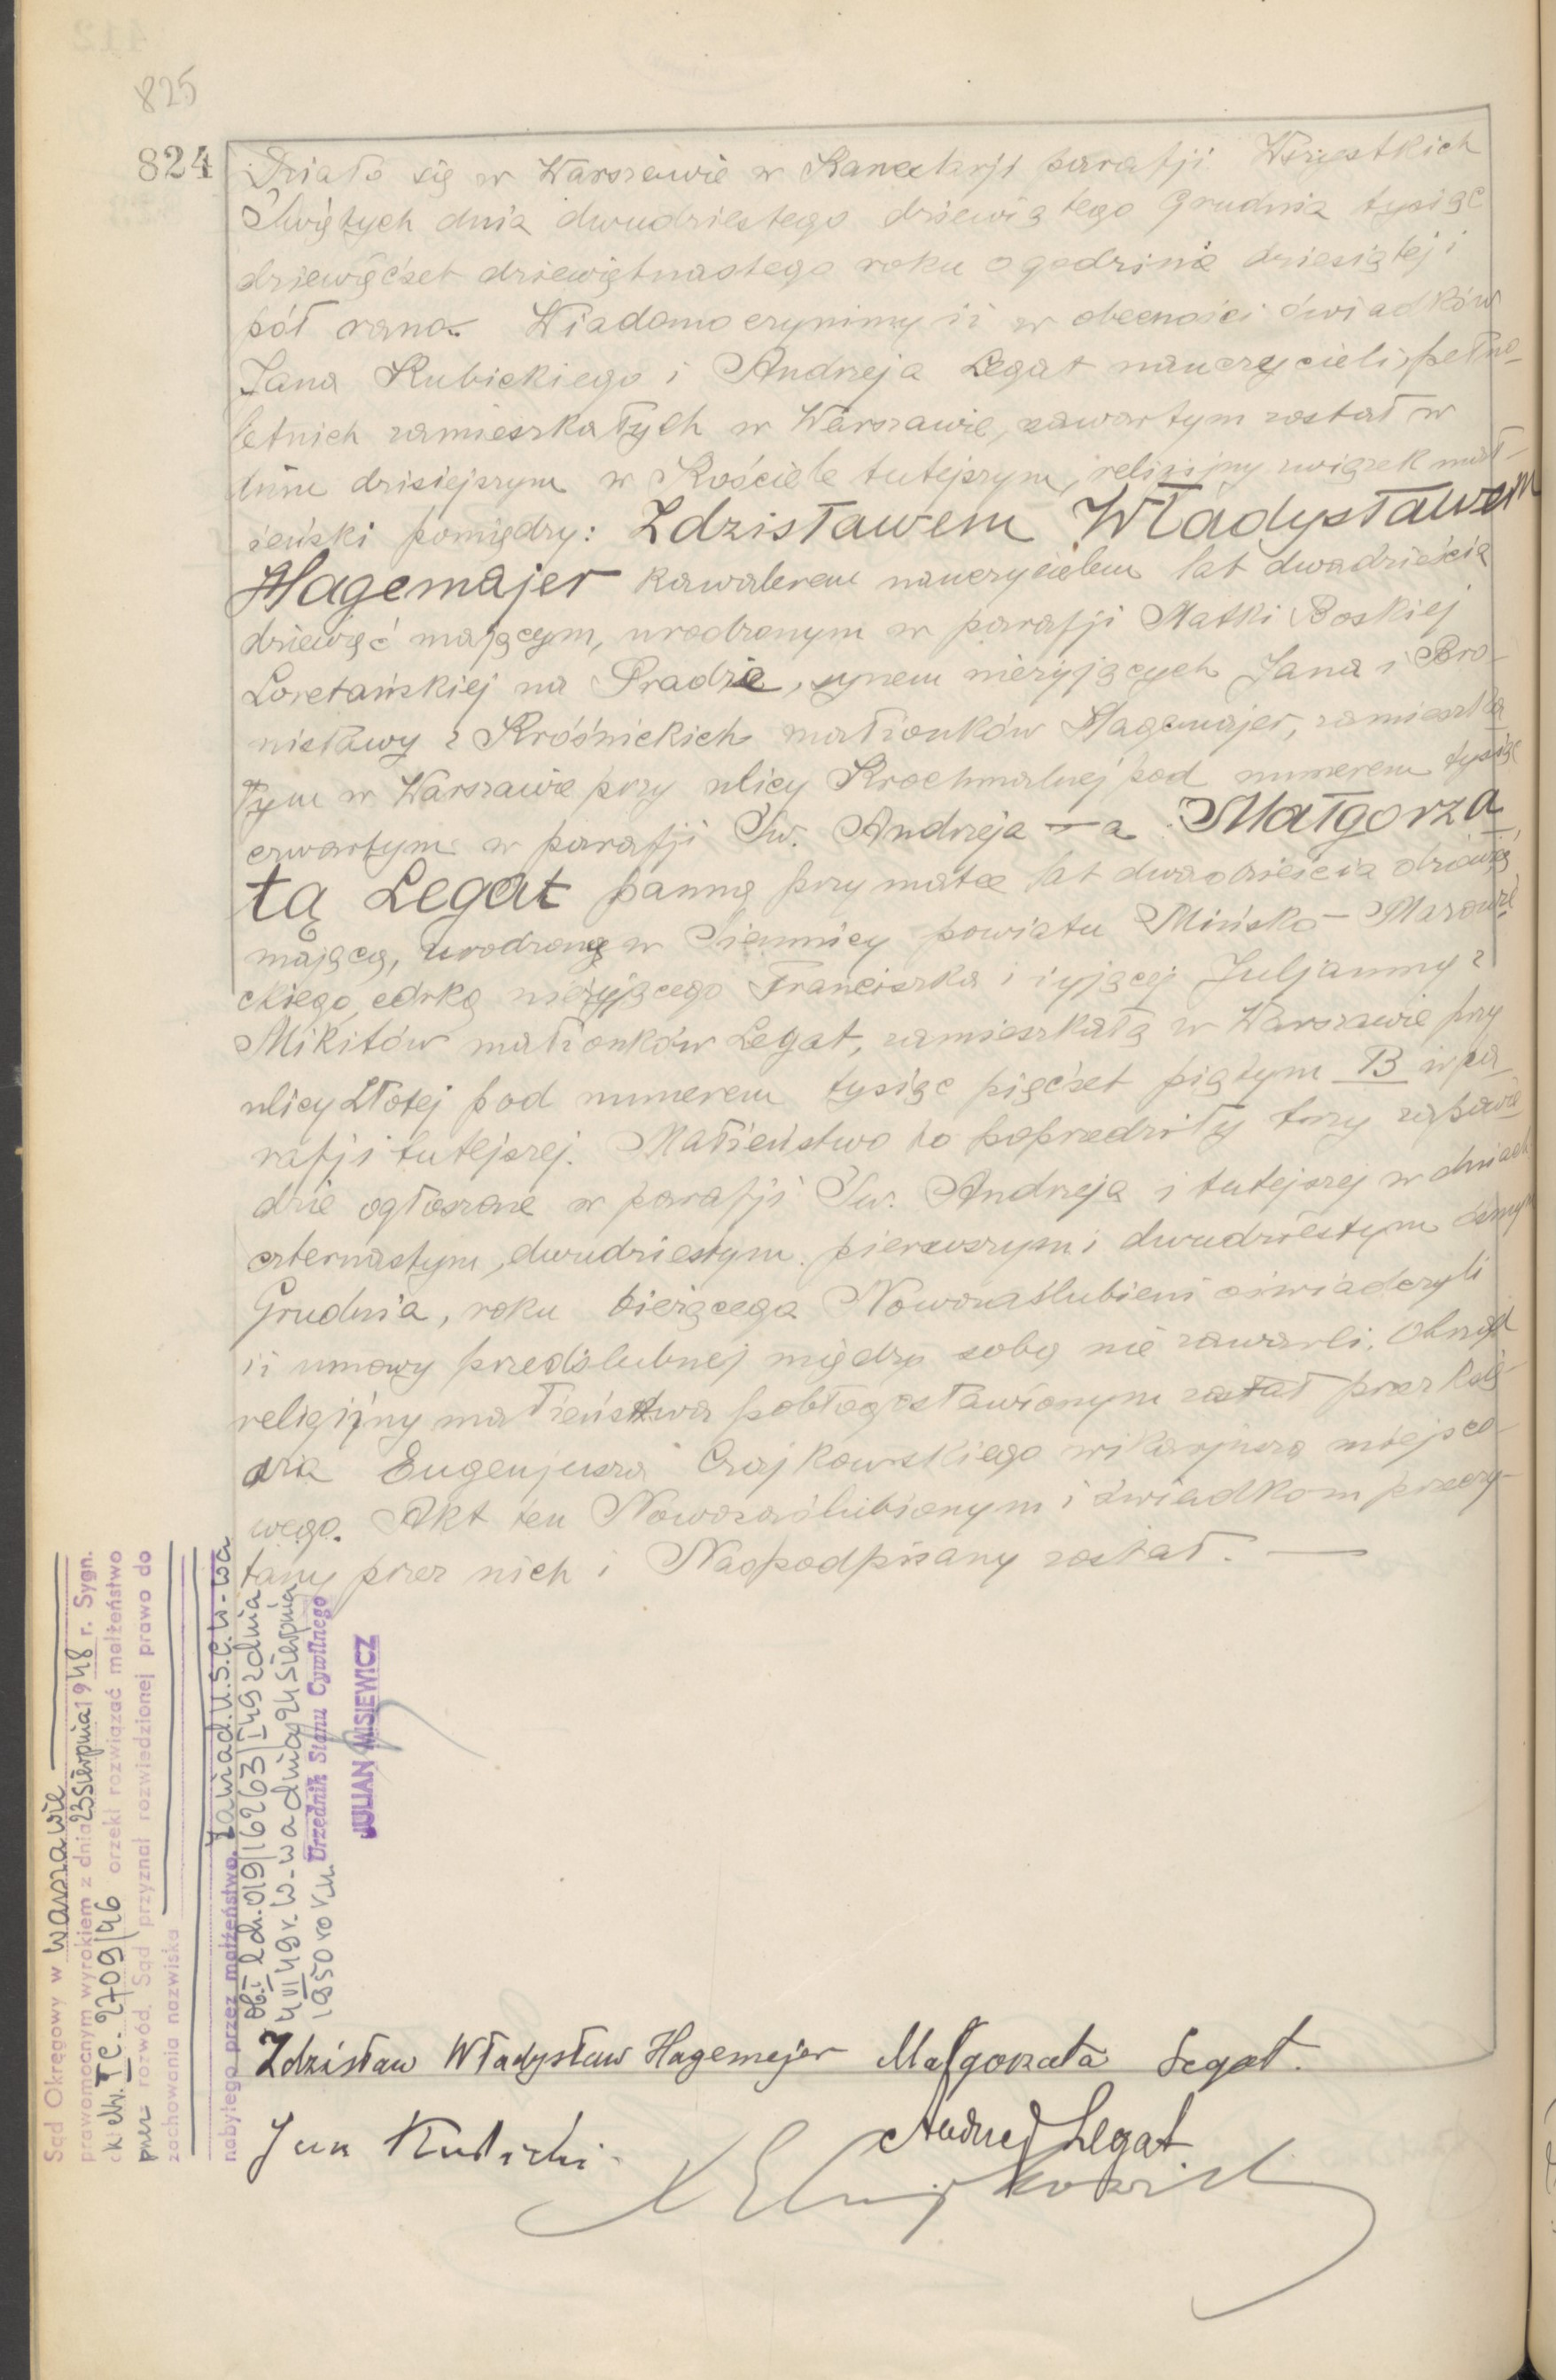 825
824
Działo się w Warszawie w Kancelarji parafji Wszystkich
Świętych dnia dwudziestego dziewiątego Grudnia tysiąc
dziewięćset dziewiętnastego roku o godzinie dziesiątej i
pół rano. Wiadomo czynimy iż w obecności świadków
Jana Kubickiego i Andrzeja Legat nauczycieli, pełno-
letnich zamieszkałych w Warszawie, zawartym został w
dniu dzisiejszym w Kościele tutejszym, religijny związek mał-
żeński pomiędzy: Zdzisławem Władysławem
Hagemajer kawalerem nauczycielem lat dwadzieścia
dziewięć mającym, urodzonym w parafji Matki Boskiej
Loretańskiej na Pradze, synem nieżyjących Jana i Bro-
nisławy z Krośnickich małżonków Hagemajer, zamieszka
łym w Warszawie przy ulicy Krochmalnej pod numerem tysiąc
czwartym w parafji Św. Andrzeja — a Małgorza
tą Legat panną przy matce lat dwadzieścia dziewięć
mającą, urodzoną w Siennicy powiatu Mińsko-Mazowie
ckiego, córką nieżyjącego Franciszka i żyjącej Juljanny z
Mikitów małżonków Legat, zamieszkałą w Warszawie przy
ulicy Złotej pod numerem tysiąc pięćset piątym B w pa
rafji tutejszej. Małżeństwo to poprzedziły trzy zapowie
dzie ogłoszone w parafji Św. Andrzeja i tutejszej w dniach
czternastym, dwudziestym pierwszym i dwudziestym ósmym
Grudnia, roku bieżącego Nowozaślubieni oświadczyli
iż umowy przedślubnej między sobą nie zawarli. Obrząd
religijny małżeństwa pobłogosławionym został przez Księ-
dza Eugenjusza Czajkowskiego wikarjusza miejsco-
wego. Akt ten Nowozaślubionym i świadkom przeczy-
tany przez nich i Nas podpisany został. —
Zdzisław Władysław Hagemajer Małgorzata Legat.
Jan Kubicki. Andrzej Legat
Sąd Okręgowy w Warszawie
prawomocnym wyrokiem z dnia 23 sierpnia 1948 r. Sygn.
I C. 2709/46 orzekł rozwiązać małżeństwo
przez rozwód. Sąd przyznał rozwiedzionej prawo do
zachowania nazwiska
nabytego przez małżeństwo. Zawiad. U.S.C. W-wa
019/16263/I 49 z dnia
4 III 49 r. W-wa dnia 24 sierpnia
1950 roku Urzędnik Stanu Cywilnego
JULIAN MISIEWICZ